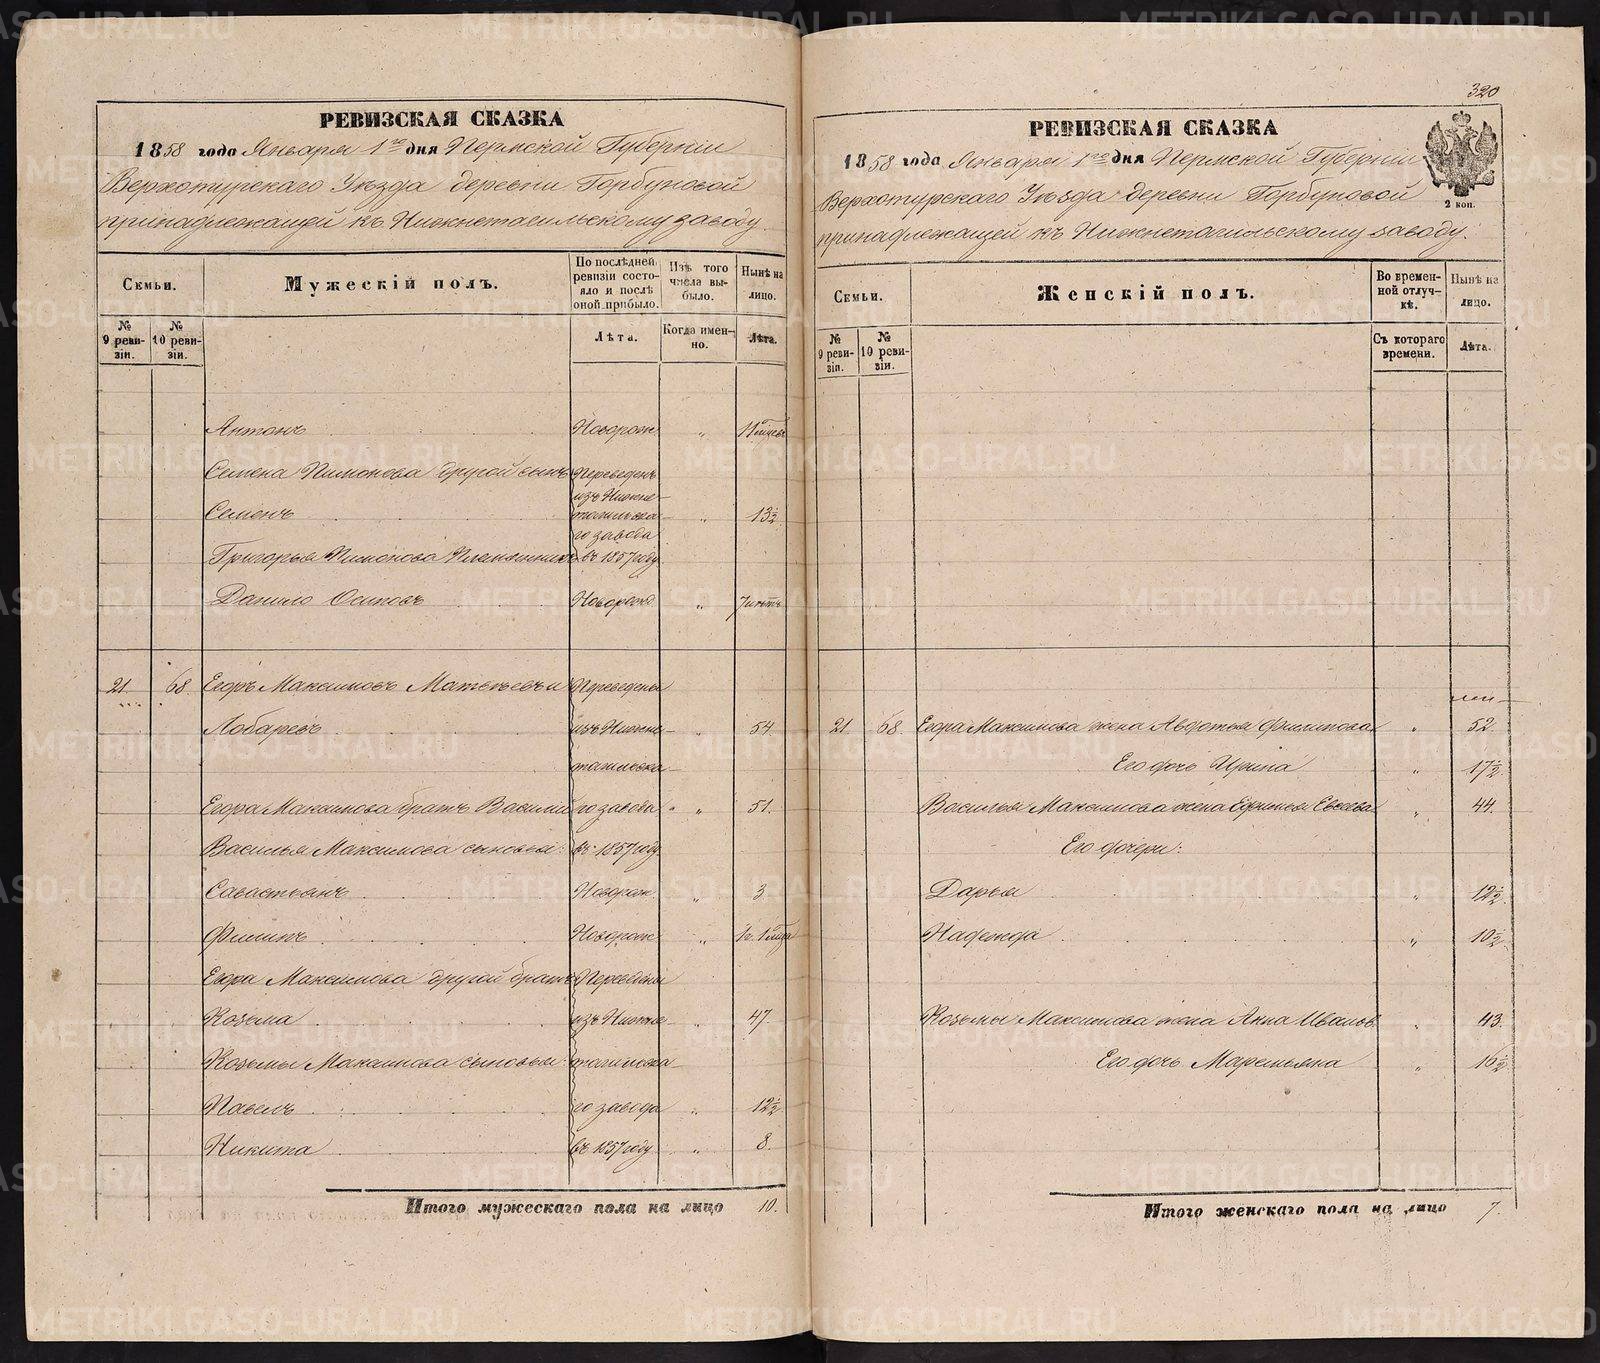 320
РЕВИЗСКАЯ СКАЗКА
1858 года Января 1го дня Пермской Губерніи
Верхотурскаго Уѣзда деревни Горбуновой
принадлежащей къ Нижнетагильскому заводу.
Семьи.
Мужескій полъ.
По послѣдней ревизіи состояло и послѣ оной прибыло.
Изъ того числа выбыло.
Нынѣ на лицо.
№ 9 ревизіи.
№ 10 ревизіи.
Лѣта.
Когда именно.
Лѣта.
Антонъ Новорож. " 11 мѣсец
Семена Пимонова другой сынъ Переведенъ
изъ Нижне-
Семенъ тагильска- " 13½
го завода
Григорья Пимонова племянникъ въ 1857 году
Данило Осиповъ Новорож. " 7 лѣтъ
21. 68. Егоръ Максимовъ Матвѣевъ и Переведены
Лобаревъ изъ Нижне- " 54
тагильска-
Егора Максимова братъ Василий го завода " 51.
Василья Максимова сыновья: въ 1857 году
Савастьянъ Новорож. " 3
Филипъ Новорож. " 1г. 1 мѣца
Егора Максимова другой братъ Переведены
Козьма изъ Нижне- " 47
Козьмы Максимова сыновья: тагильска-
Павелъ го завода " 12½
Никита въ 1857 году " 8.
Итого мужескаго пола на лицо 10.
РЕВИЗСКАЯ СКАЗКА
1858 года Января 1го дня Пермской Губерніи
Верхотурскаго Уѣзда деревни Горбуновой
принадлежащей къ Нижнетагильскому заводу.
2 коп.
Семьи.
Женскій полъ.
Во временной отлучкѣ.
Нынѣ на лицо.
№ 9 ревизіи.
№ 10 ревизіи.
Съ котораго времени.
Лѣта.
21. 68. Егора Максимова жена Авдотья Филипова " 52
Его дочь Ирина " 17½
Василья Максимова жена Ефимья Евсеева " 44.
Его дочери:
Дарья " 12½
Надежда " 10½
Козьмы Максимова жена Анна Иванов. " 43.
Его дочь Маремьяна " 16½
Итого женскаго пола на лицо 7.
METRIKI.GASO-URAL.RU